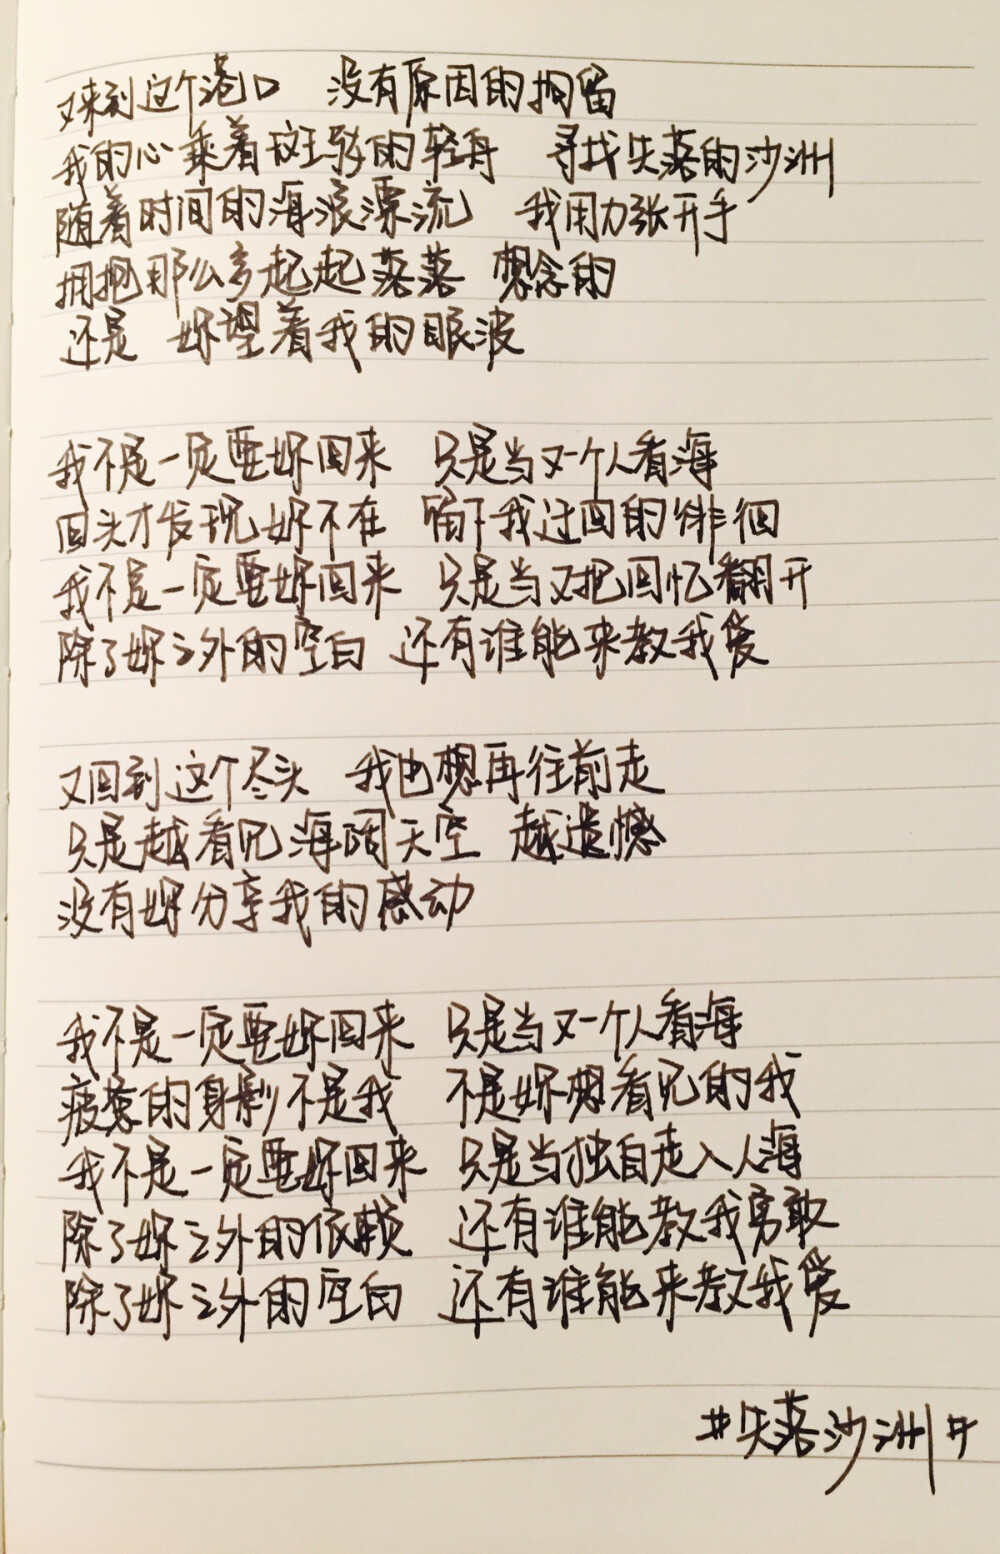 又来到这个港口 没有原因的拘留
我的心乘着斑驳的轻舟 寻找失落的沙洲
随着时间的海浪漂流 我用力张开手
拥抱那么多起起落落 想念的
还是 妳望着我的眼波
我不是一定要妳回来 只是当又一个人看海
回头才发现妳不在 留下我迂回的徘徊
我不是一定要妳回来 只是当又把回忆翻开
除了妳之外的空白 还有谁能来教我爱
又回到这个尽头 我也想再往前走
只是越看见海阔天空 越遗憾
没有妳分享我的感动
我不是一定要妳回来 只是当又一个人看海
疲惫的身影不是我 不是妳想看见的我
我不是一定要妳回来 只是当独自走入人海
除了妳之外的依赖 还有谁能教我勇敢
除了妳之外的空白 还有谁能来教我爱
#失落沙洲#